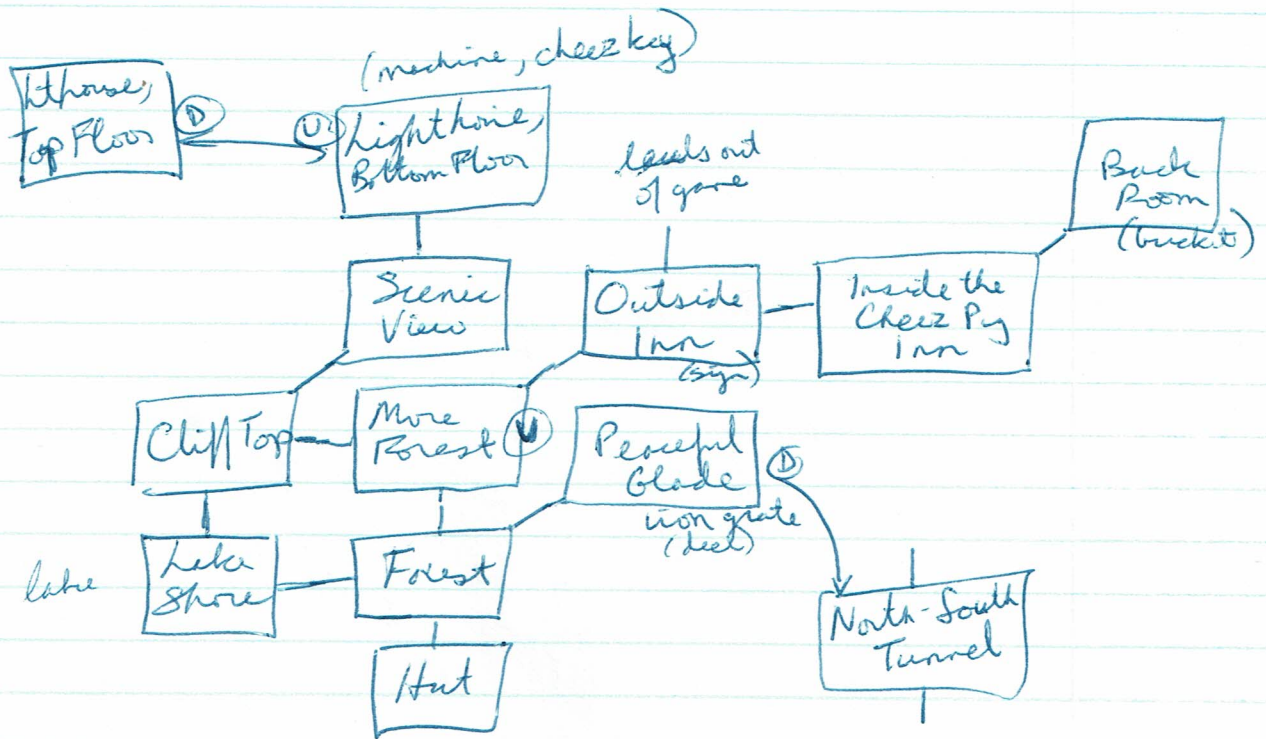 (machine, cheez key)
hthouse,
Top Floor
D
U
Lighthouse,
Bottom Floor
leads out
of game
Back
Room
(bucket)
Scenic
View
Outside
Inn
(sign)
Inside the
Cheez Pig
Inn
Cliff Top
More
Forest
U
Peaceful
Glade
D
iron grate
lake
Lake
Shore
Forest
North-South
Tunnel
Hut